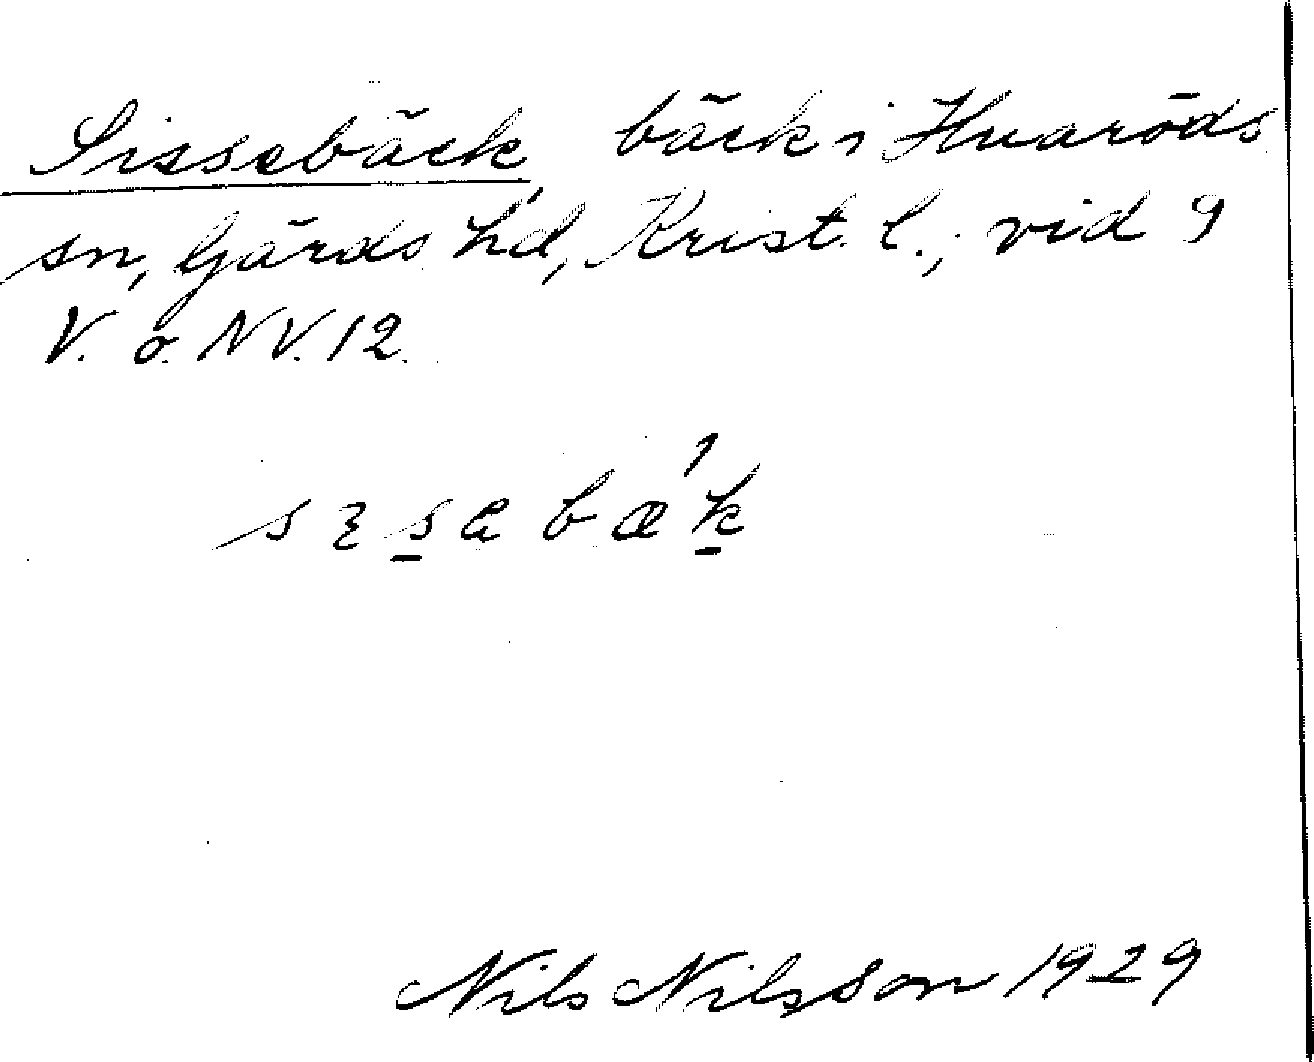 Sissebäck, bäck i Huaröds
sn, Gärds hd, Krist. l.; vid 9
V. o. NV. 12.
sɪs̱ebæ´ḵ
Nils Nilsson 1929